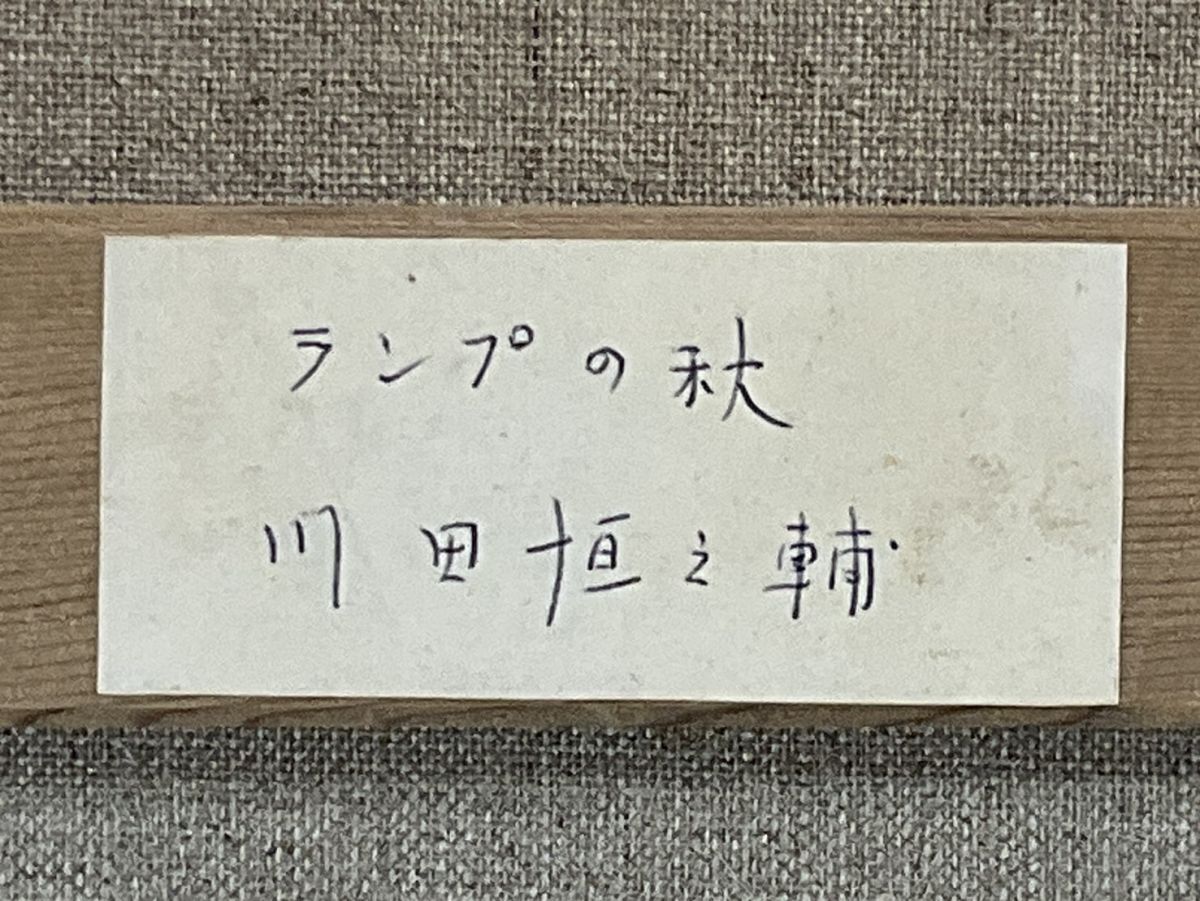 ランプの秋
川田恒之輔